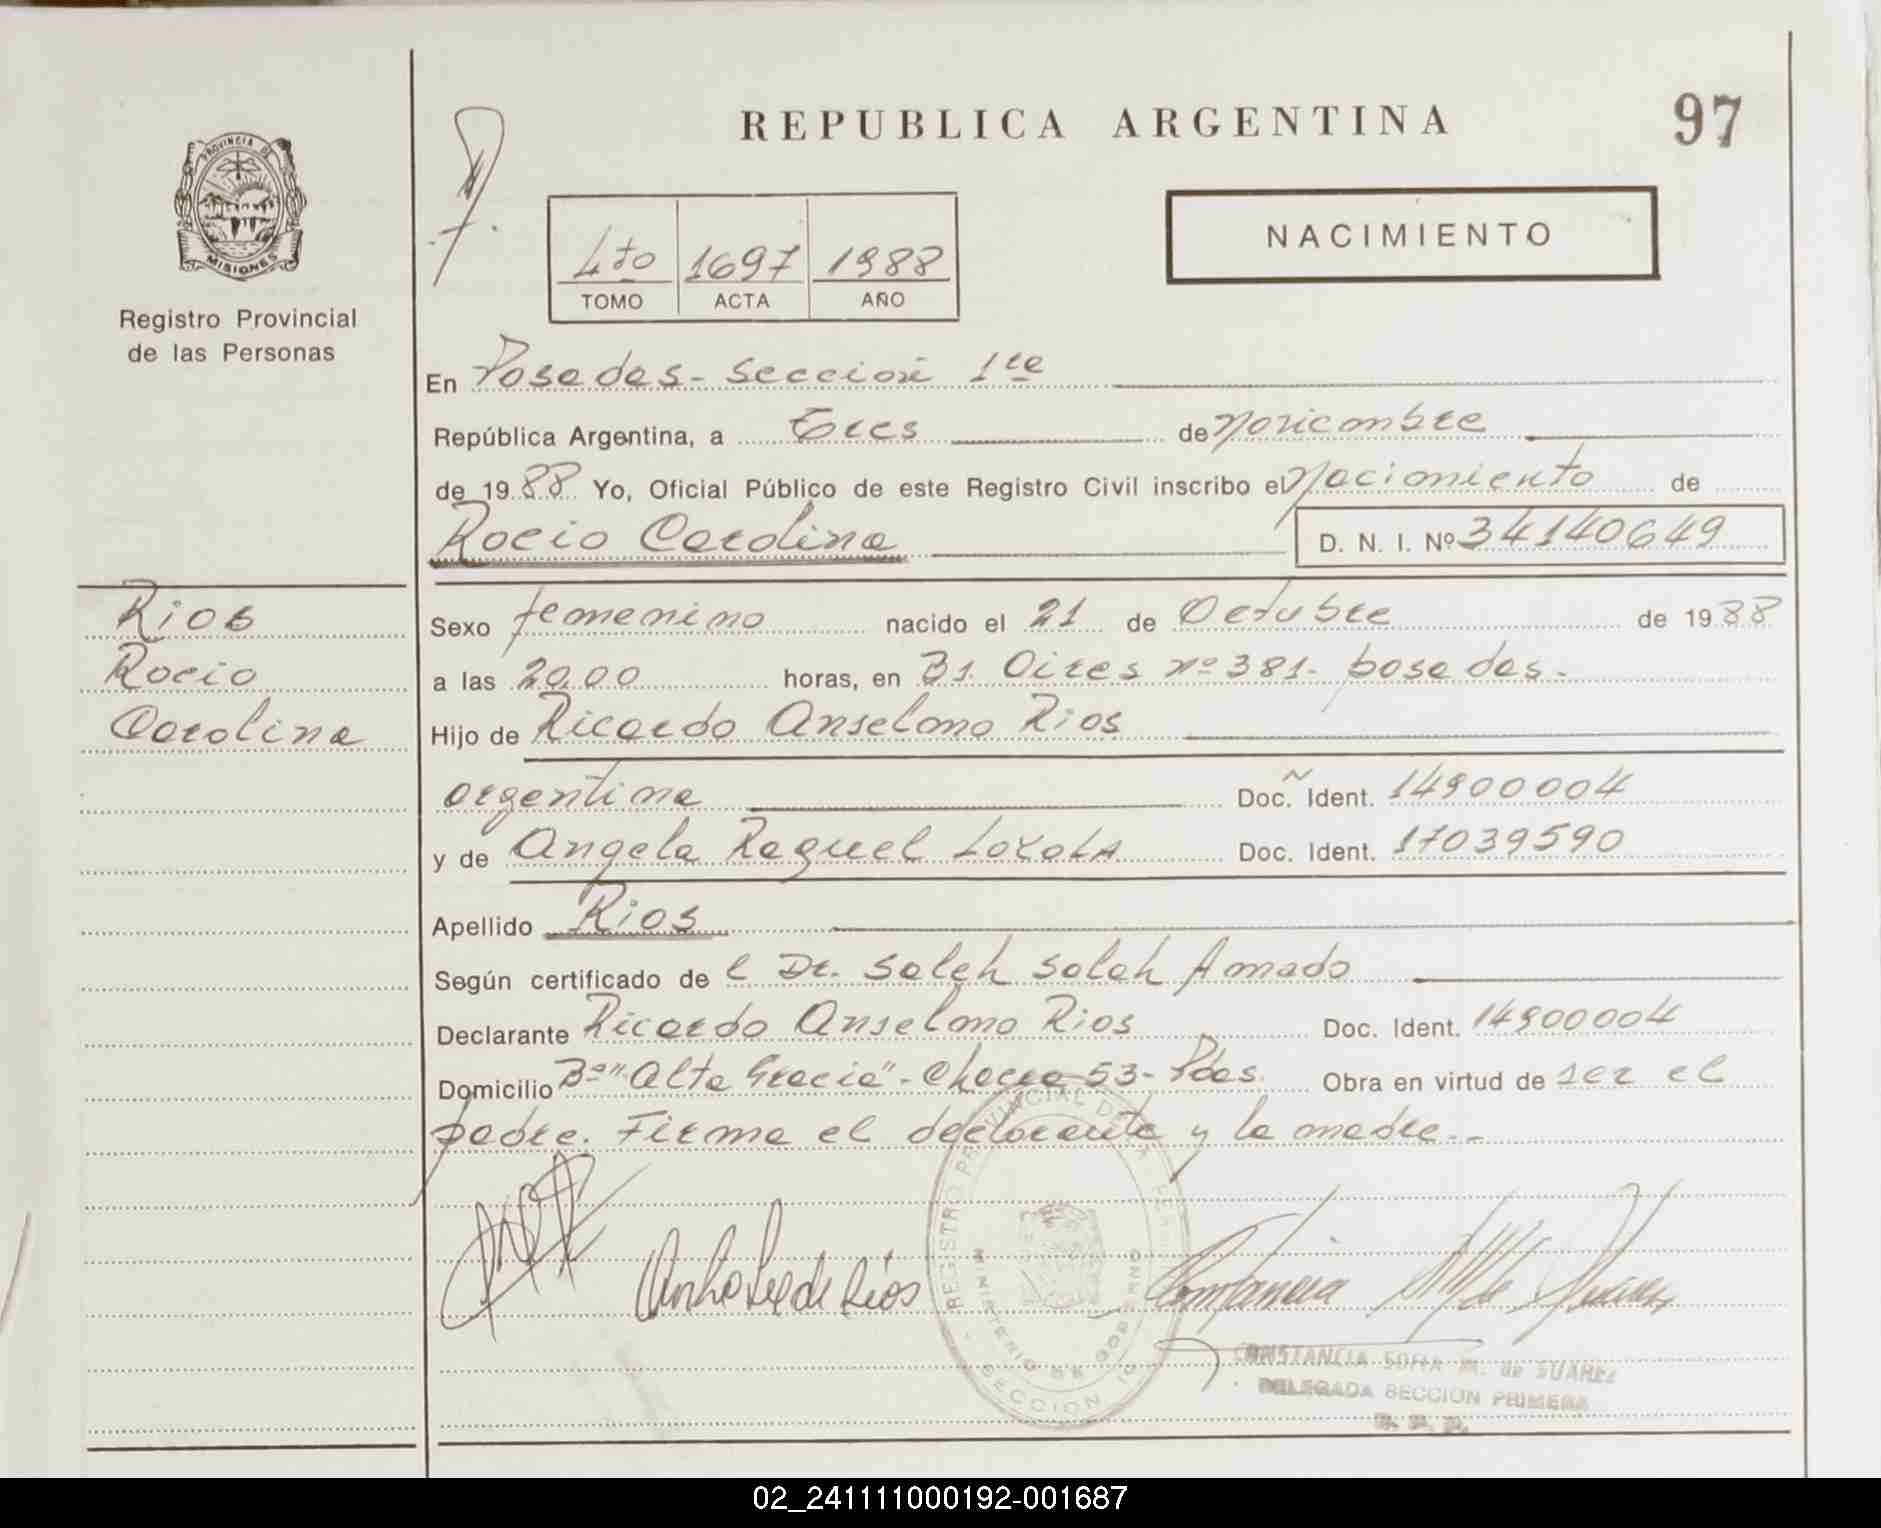 REPUBLICA ARGENTINA
97
PROVINCIA DE
MISIONES
Registro Provincial
de las Personas
NACIMIENTO
4to 1697 1988
TOMO ACTA AÑO
En Posadas - Sección 1ra
República Argentina, a Tres de Noviembre
de 1988 Yo, Oficial Público de este Registro Civil inscribo el Nacimiento de
Rocio Carolina D. N. I. Nº 34140649
Rios
Rocio
Carolina
Sexo femenino nacido el 21 de Octubre de 1988
a las 20,00 horas, en Bs. Aires nº 381- posadas.
Hijo de Ricardo Anselmo Rios
argentina Doc. Ident. 14900004
y de Angela Raquel Loyola Doc. Ident. 17039590
Apellido Rios
Según certificado de l Dr. Saleh Saleh Amado
Declarante Ricardo Anselmo Rios Doc. Ident. 14900004
Domicilio Bº "Alta Gracia" - Chacra 53 - Pdas. Obra en virtud de ser el
padre. Firma el declarante y la madre.-
REGISTRO PROVINCIAL DE
MINISTERIO DE GOBIERNO
SECCION
de Rios
Constancia de Suarez
CONSTANCIA SOFIA M. de SUAREZ
DELEGADA SECCION PRIMERA
R. P. P.
02_241111000192-001687